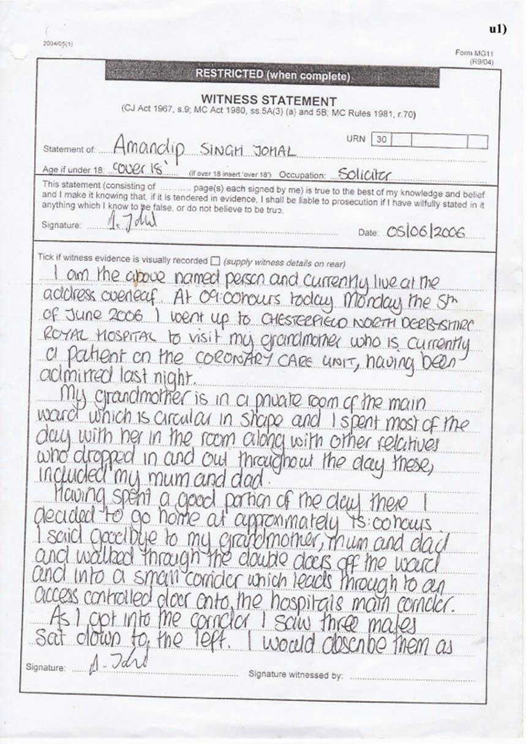 u1)
2004/05(1)
Form MG11
(R9/04)
RESTRICTED (when complete)
WITNESS STATEMENT
(CJ Act 1967, s.9; MC Act 1980, ss.5A(3) (a) and 5B; MC Rules 1981, r.70)
URN 30
Statement of: Amandip SINGH JOHAL
Age if under 18: 'over 18' (if over 18 insert 'over 18') Occupation: Solicitor
This statement (consisting of .......... page(s) each signed by me) is true to the best of my knowledge and belief
and I make it knowing that, if it is tendered in evidence, I shall be liable to prosecution if I have wilfully stated in it
anything which I know to be false, or do not believe to be true.
Signature: Date: 05/06/2006
Tick if witness evidence is visually recorded ☐ (supply witness details on rear)
I am the above named person and currently live at the
address overleaf. At 09:00 hours today Monday the 5th
of June 2006 I went up to CHESTERFIELD NORTH DERBYSHIRE
ROYAL HOSPITAL to visit my grandmother who is currently
a patient on the CORONARY CARE UNIT, having been
admitted last night.
My grandmother is in a private room of the main
ward which is circular in shape and I spent most of the
day with her in the room along with other relatives
who dropped in and out throughout the day these,
included my mum and dad.
Having spent a good portion of the day there I
decided to go home at approximately 15:00 hours.
I said goodbye to my grandmother, mum and dad
and walked through the double doors off the ward
and into a small corridor which leads through to an
access controlled door onto the hospitals main corridor.
As I got into the corridor I saw three males
sat down to the left. I would describe them as
Signature: Signature witnessed by: